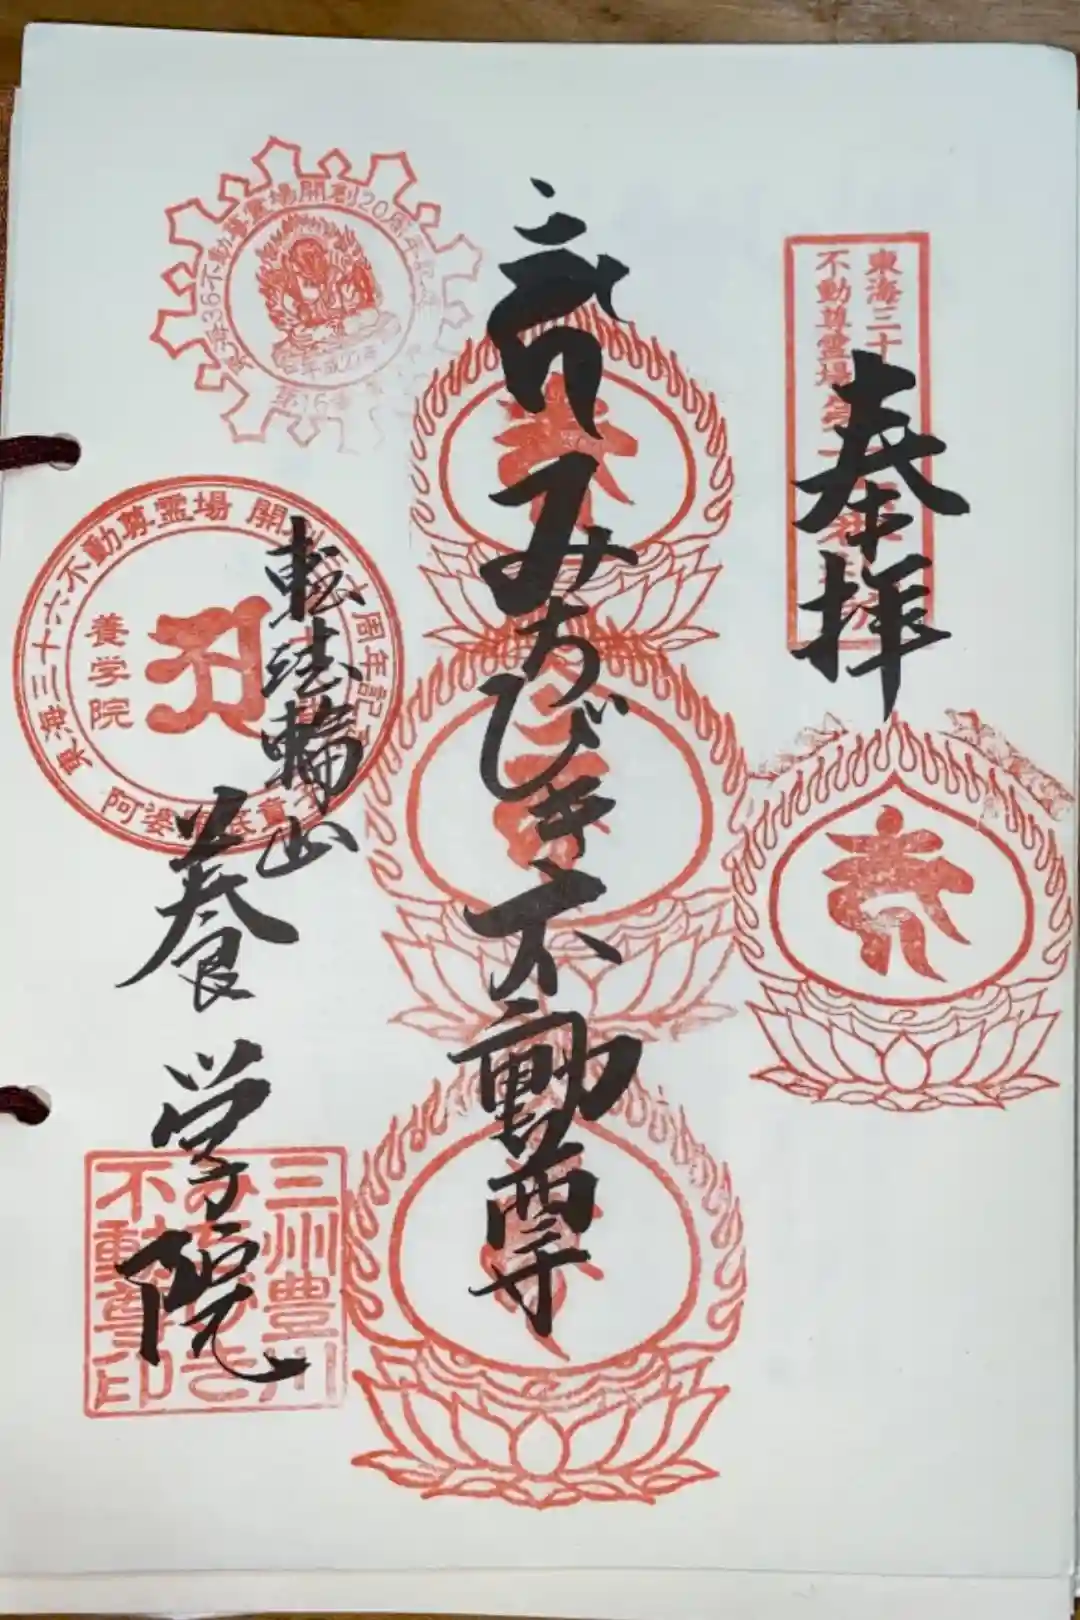 奉拝
東海三十
不動尊霊場
みちびき不動尊
転法輪山
養学院
不動尊霊場開創20周年記
第16番
東海三十六不動尊霊場
周年記
養学院
三州豊川
みちびき
不動尊印